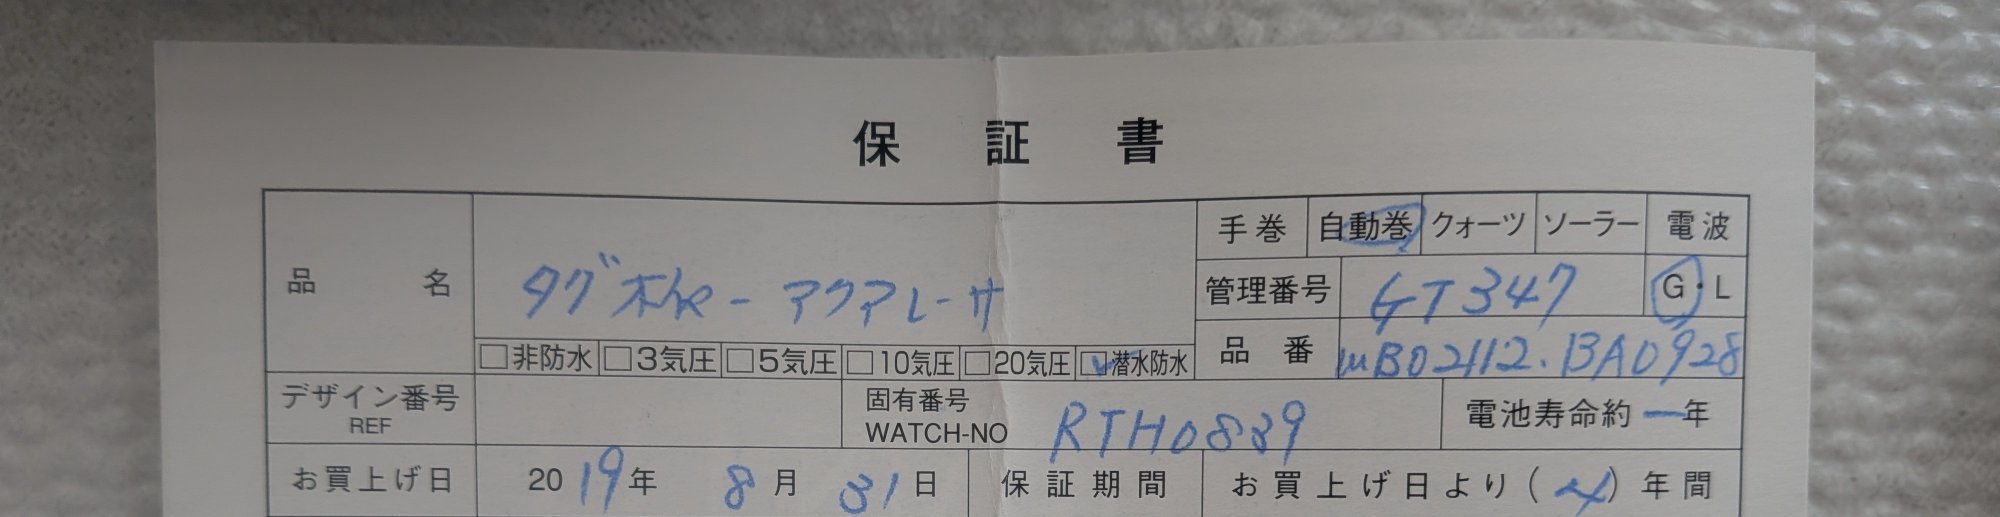 保証書
品名 タグホイヤー アクアレーサ
手巻 自動巻 クォーツ ソーラー 電波
管理番号 GT347 G・L
□非防水 □3気圧 □5気圧 □10気圧 □20気圧 □潜水防水
品番 WBD2112.BA0928
デザイン番号 REF
固有番号 WATCH-NO RTH0839
電池寿命約 ー 年
お買上げ日 2019年 8月 31日
保証期間 お買上げ日より( )年間